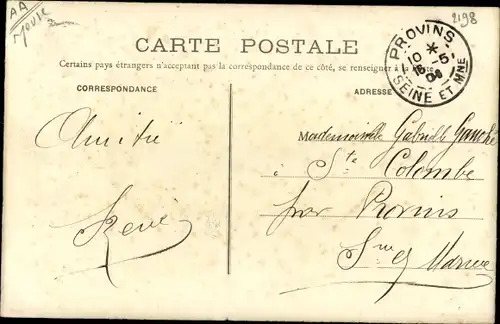 AA
Meuse
2198
CARTE POSTALE
Certains pays étrangers n'acceptant pas la correspondance de ce côté, se renseigner à la
PROVINS
10 *
16 - 5
SEINE ET MNE
CORRESPONDANCE
ADRESSE
Amitié
René
Mademoiselle Gabrielle Gauché
à Ste Colombe
par Provins
S me et Marne